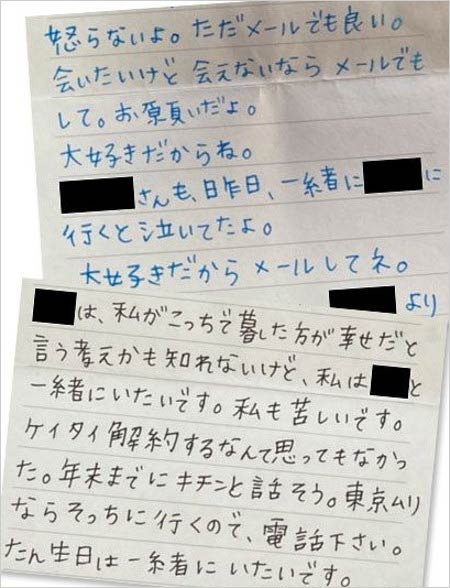 怒らないよ。ただメールでも良い。
会いたいけど会えないならメールでも
して。お願いだよ。
大好きだからね。
さんも、日昨日、一緒者に に
行くと泣いてたよ。
大好きだからメールしてネ。
より
は、私がこっちで暮した方が幸せだと
言う考えかも知れないけど、私は と
一緒にいたいです。私も苦しいです。
ケイタイ解約するなんて思ってもなかっ
た。年末までにキチンと話そう。東京ムリ
ならそっちに行くので、電話下さい。
たん生日は一緒者にいたいです。